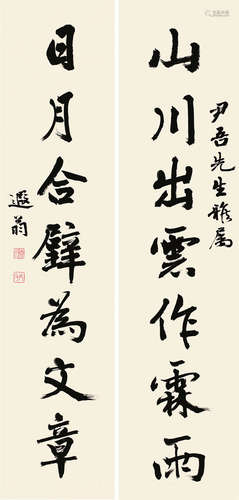 尹吾先生雅属
山川出雲作霖雨
日月合璧為文章
遐翁